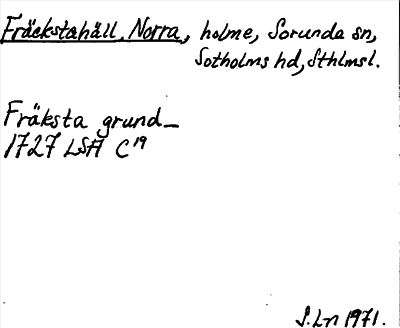 Fräckstahäll, Norra, holme, Sorunda sn,
Sotholms hd, Sthlmsl.
Fräksta grund_
1727 LSA C¹⁹
S. Ln 1971.